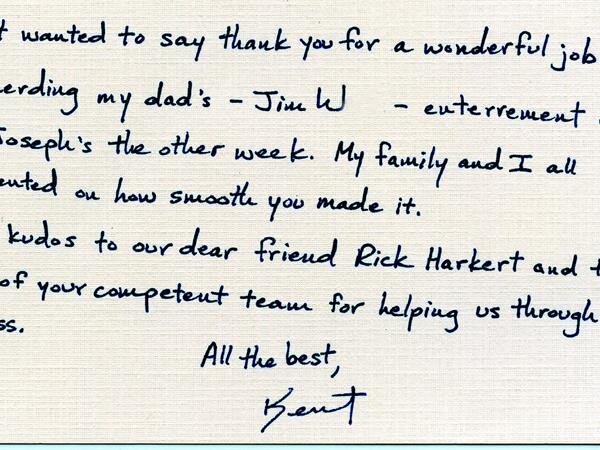 t wanted to say thank you for a wonderful job
erding my dad's - Jim W - enterrement
Joseph's the other week. My family and I all
ented on how smooth you made it.
kudos to our dear friend Rick Harkert and t
of your competent team for helping us through
ss.
All the best,
Kent